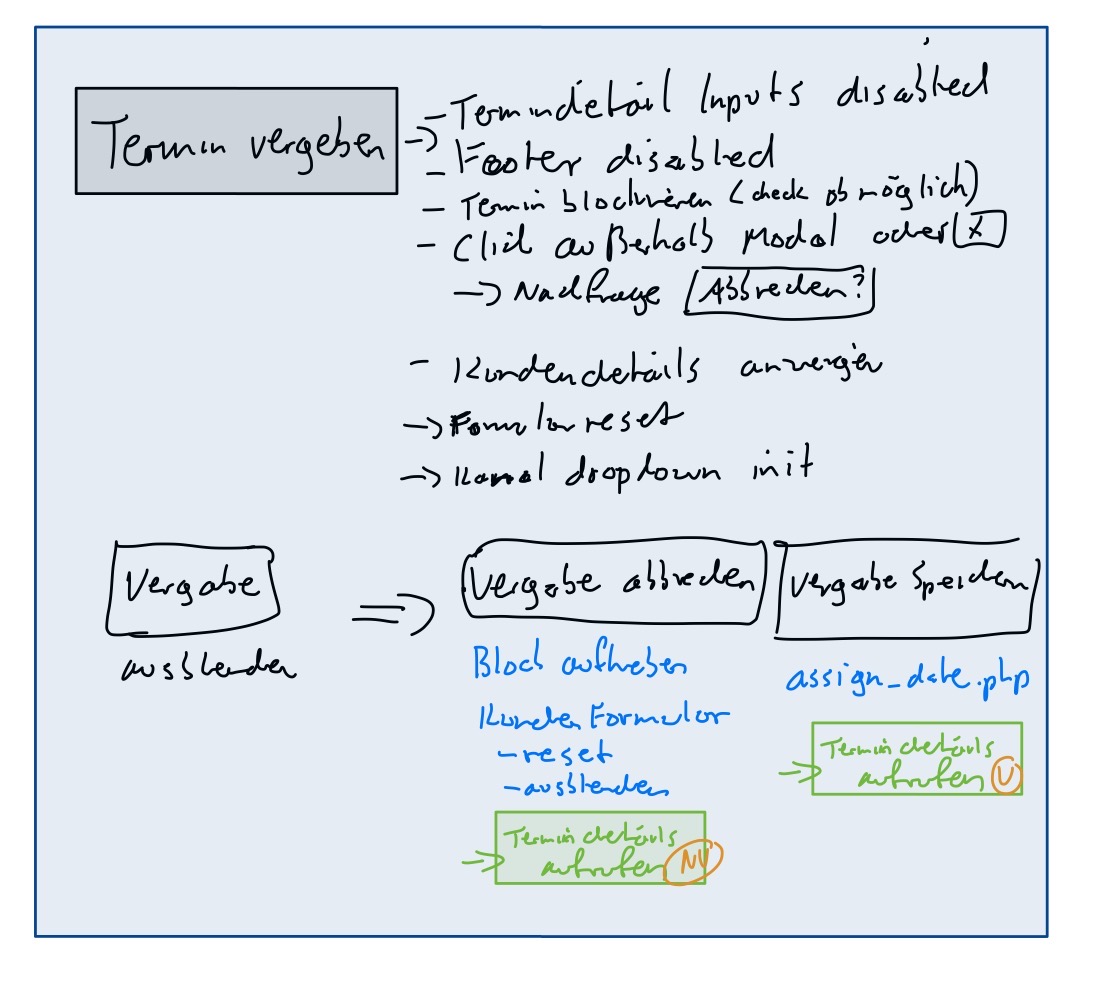 Termin vergeben
=> - Termindetail Inputs disabled
- Footer disabled
- Termin blockieren (check ob möglich)
- Click außerhalb Modal oder X
-> Nachfrage Abbrechen?
- Kundendetails anzeigen
-> Formular reset
-> Kanal dropdown init
Vergabe
ausblenden
=>
Vergabe abbrechen
Block aufheben
Kunden Formular
- reset
- ausblenden
=> Termin details
aufrufen NV
Vergabe Speichern
assign_date.php
=> Termin details
aufrufen V